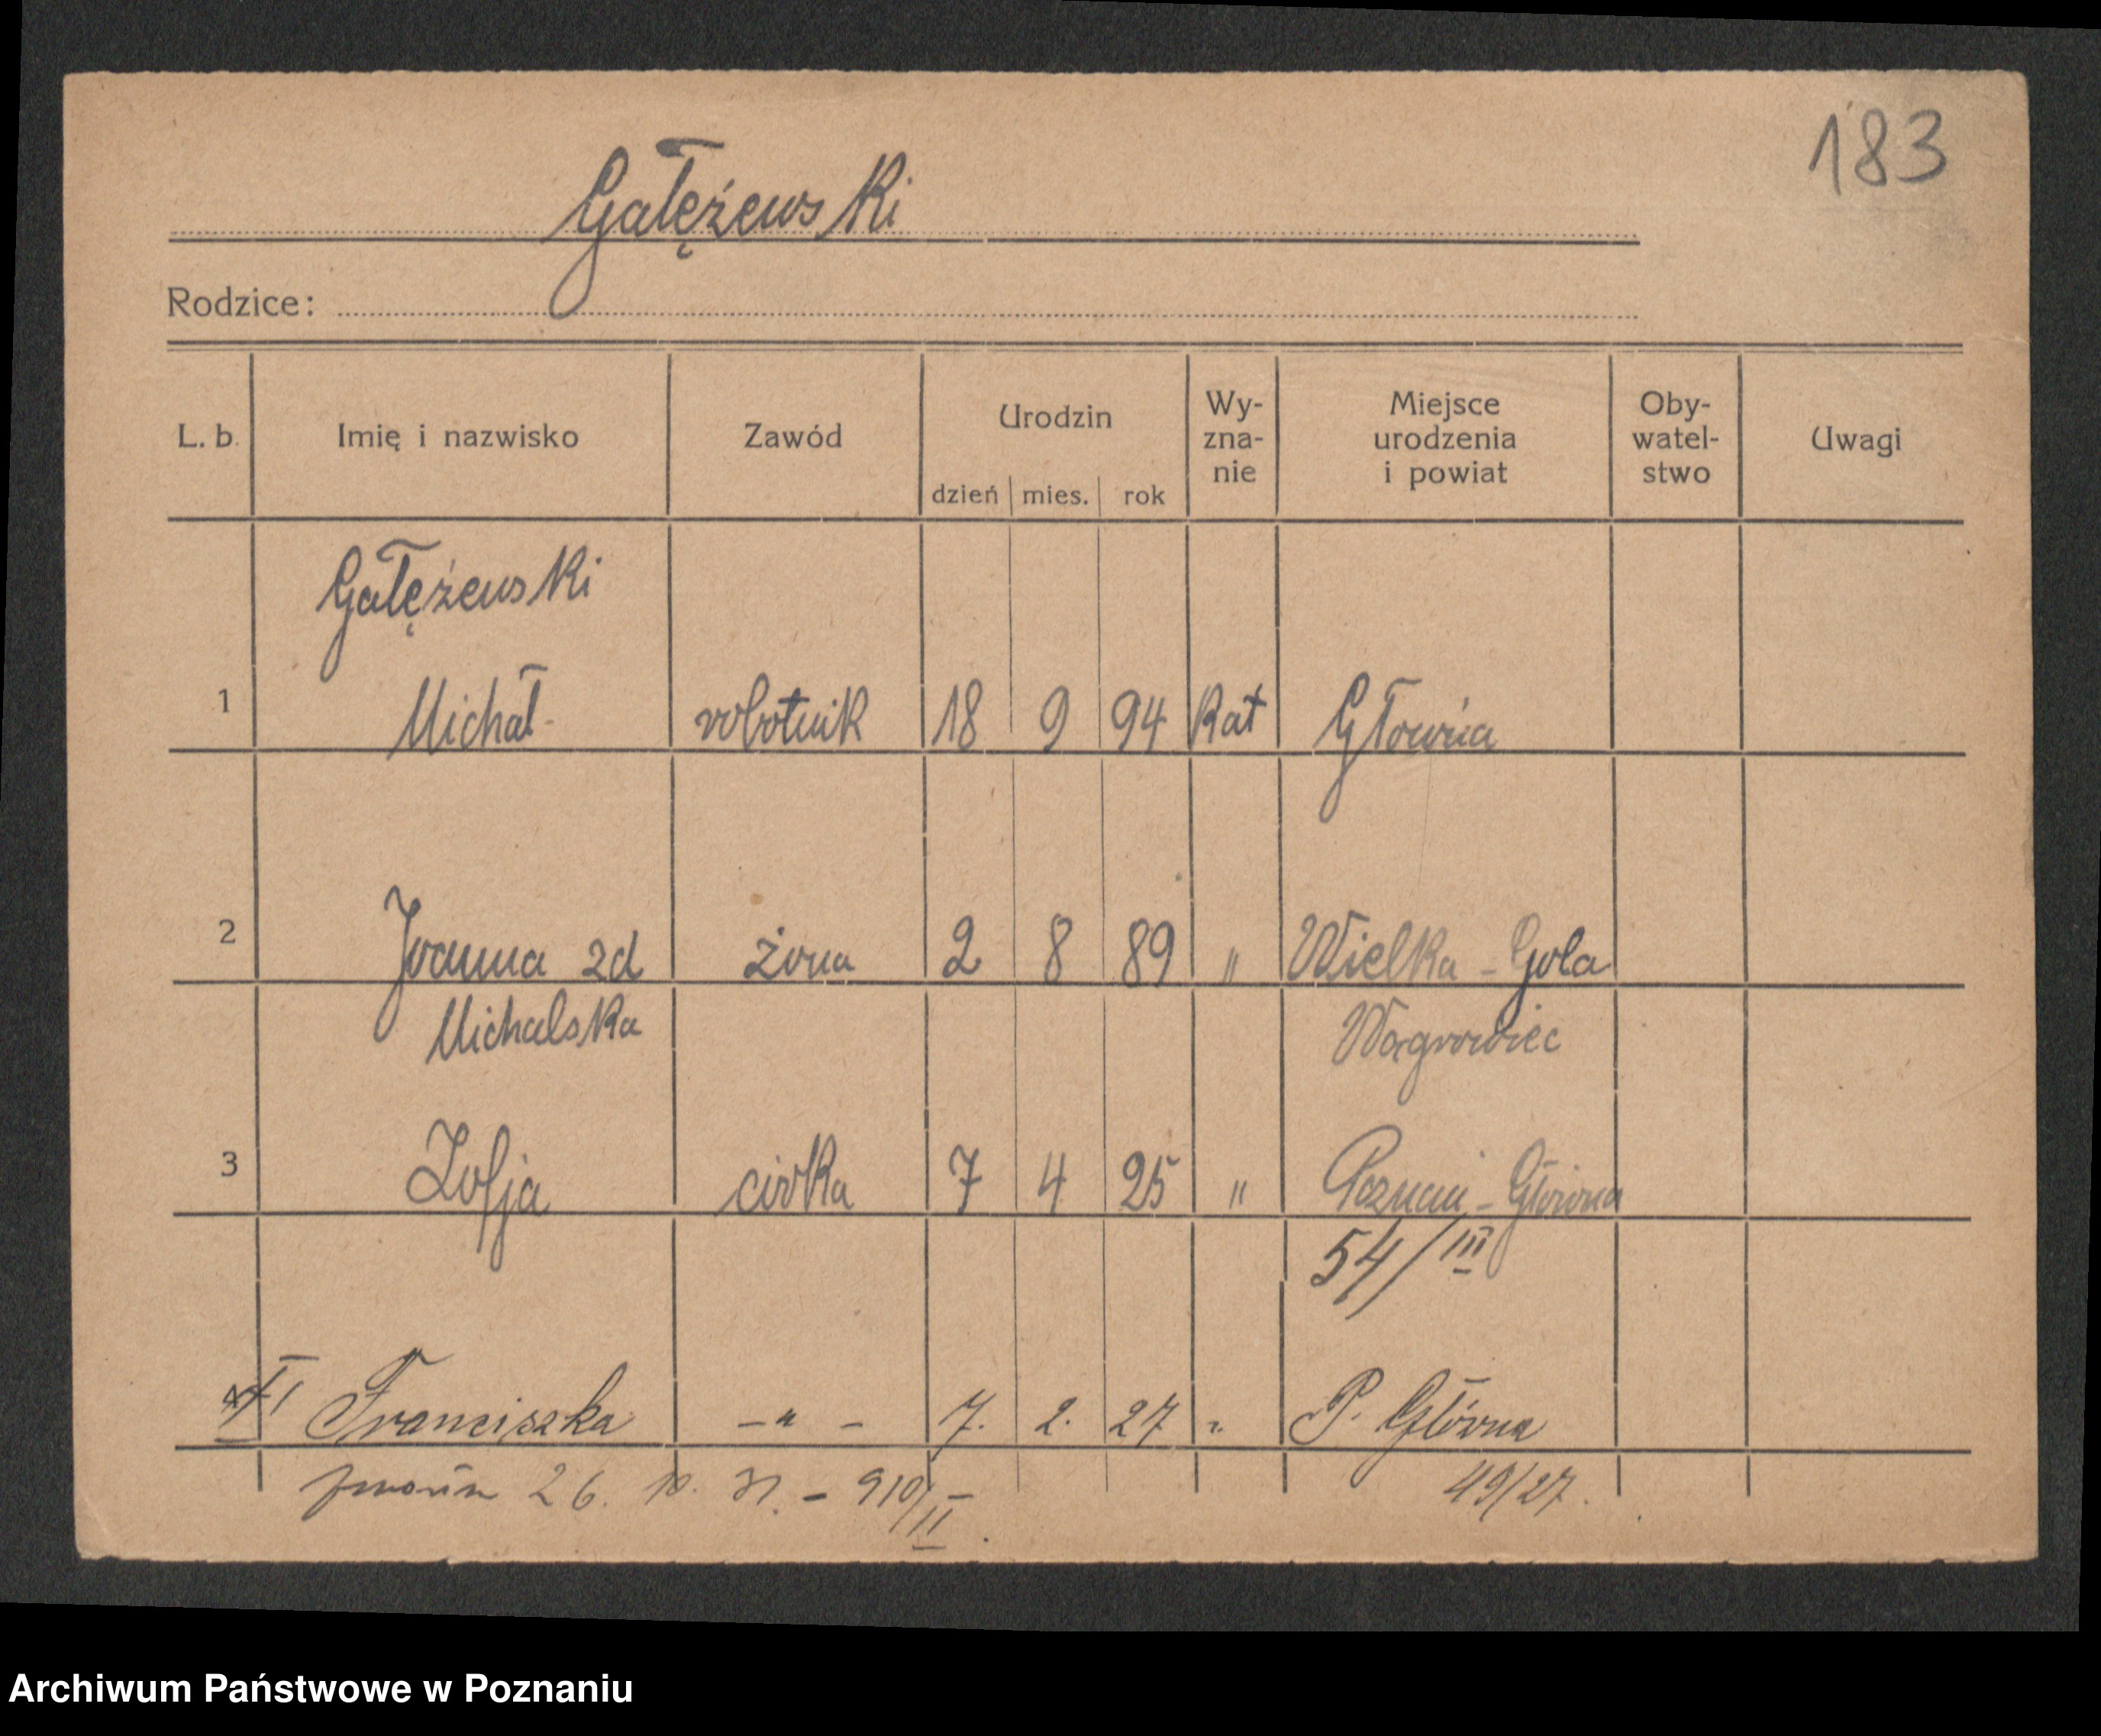 183
Gałężewski
Rodzice:
L. b. Imię i nazwisko Zawód Urodzin dzień mies. rok Wy-zna-nie Miejsce urodzenia i powiat Oby-watel-stwo Uwagi
Gałężewski
1 Michał robotnik 18 9 94 Kat Główna
2 Joanna zd żona 2 8 89 " Wielka - Gola
Michalska Wągrowiec
3 Zofja córka 7 4 25 " Poznań - Główna
54/III
4 Franciszka - " - 7. 2. 27 " P. Główna
26. 10. 31. - 910/II. 49/27.
Archiwum Państwowe w Poznaniu